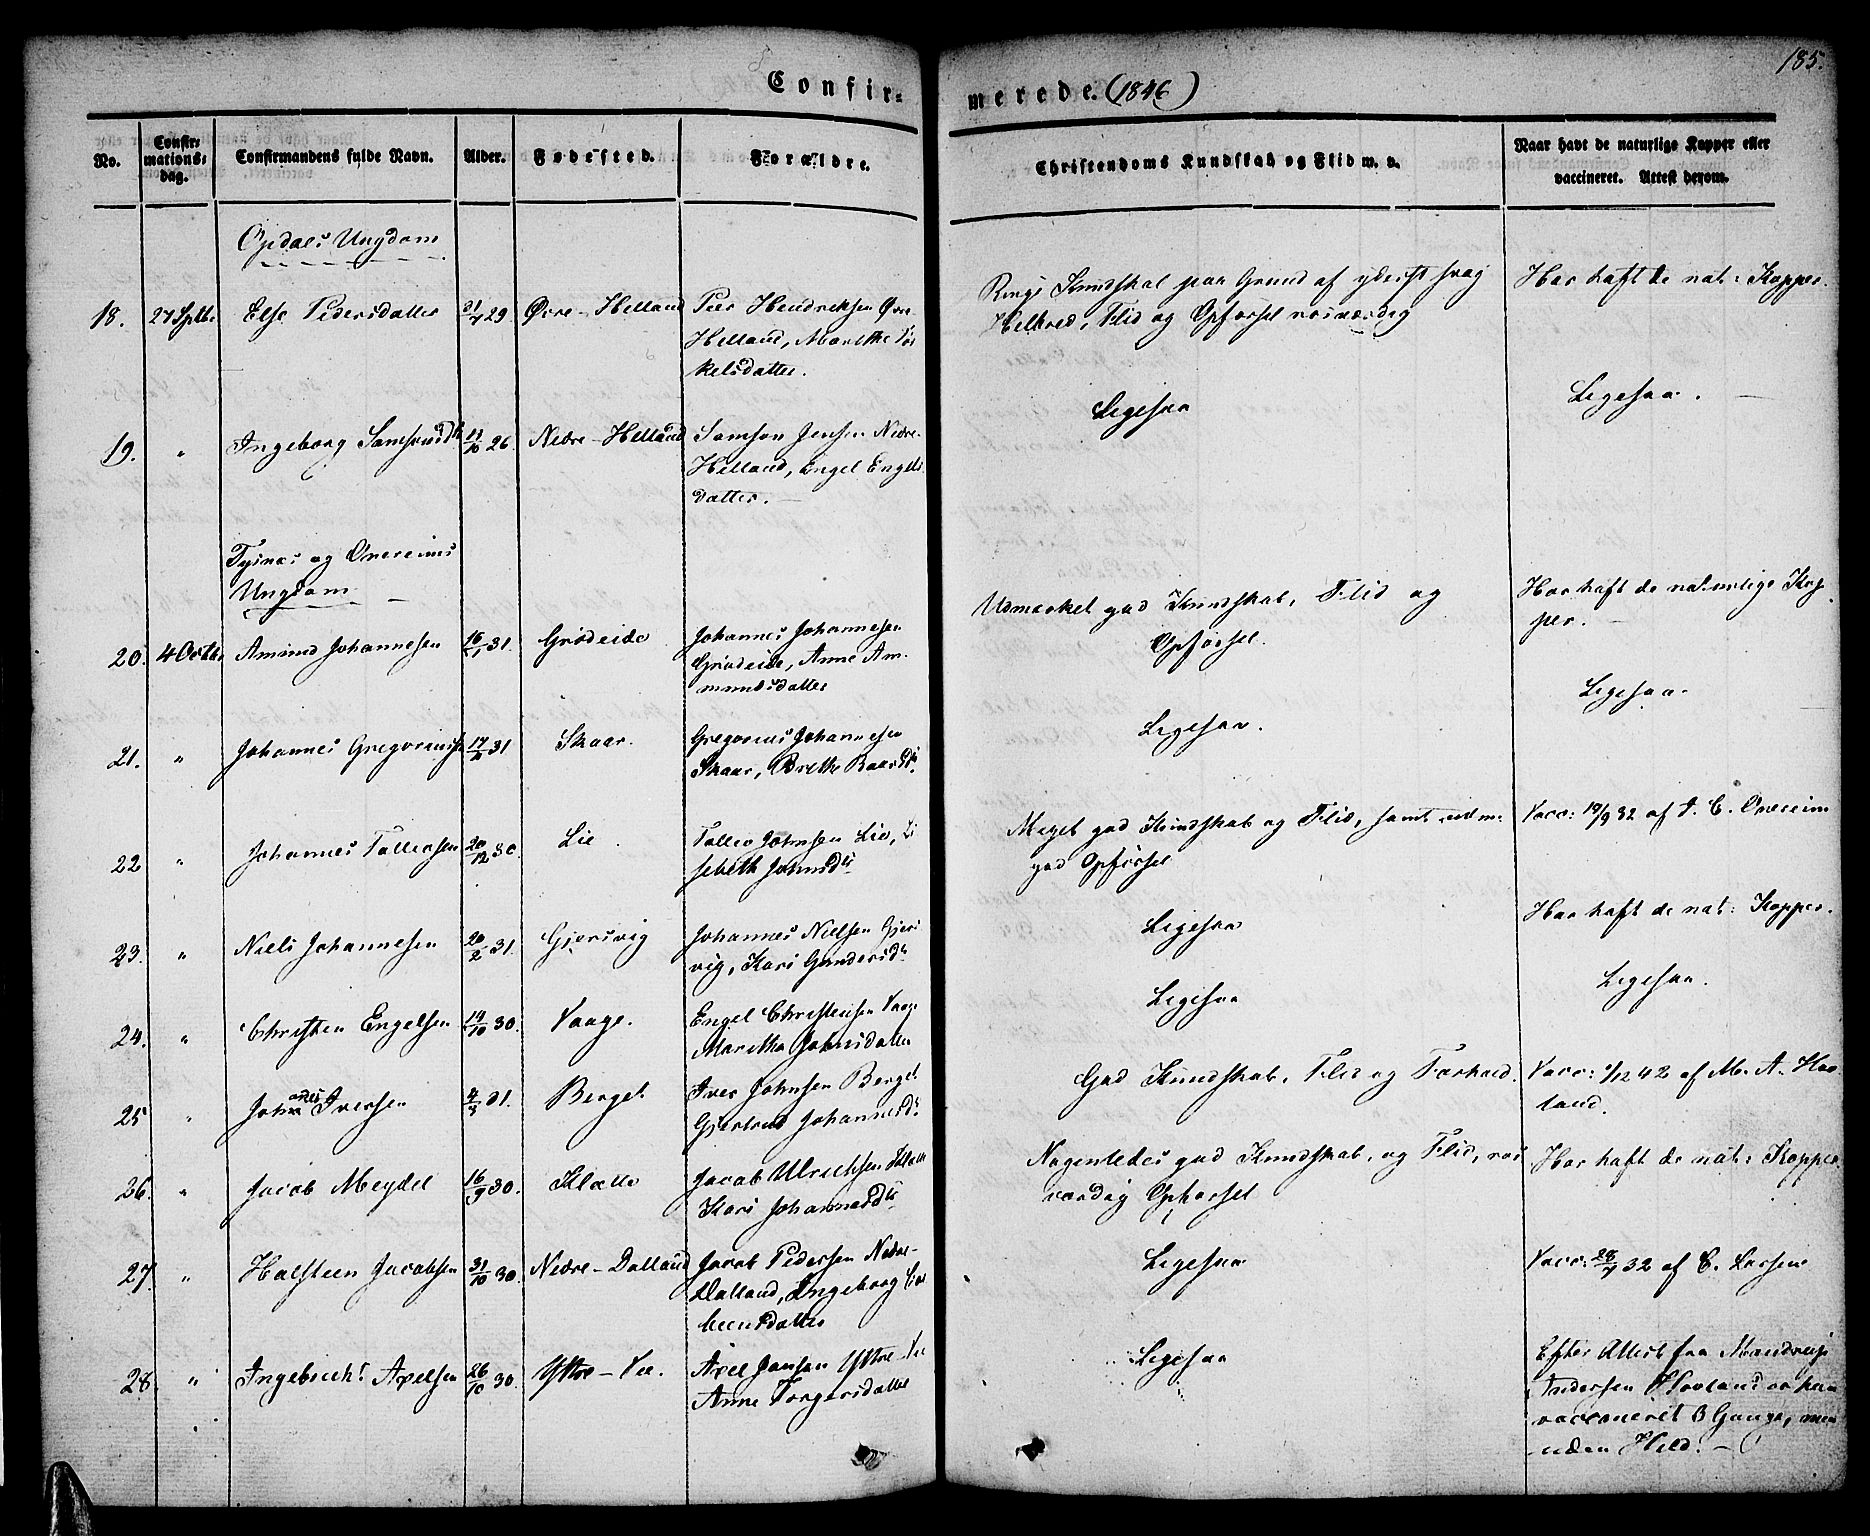 185.
Confir-
merede. (1846)
No.
Confir-
mations-
dag.
Confirmandens fulde Navn.
Alder.
Fødested.
Forældre.
Christendoms Kundskab og Flid m. v.
Naar havt de naturlige Kopper eller
vaccineret. Attest derom.
Opdals Ungdom
18. 27 Septbr Else Pedersdatter 29 Øvre-Helland Peer Hendriksen Øvre
Helland, Marethe Tor
kelsdatter.
Ringe Kundskab paa Grund af yderst svag
Helbred, Flid og Opførsel rosværdig
Har haft de nat: Kopper.
19. " Ingeborg Samsonsdtr 26 Nedre-Helland Samson Jensen Nedre-
Helland, Engel Engels
datter.
Ligesaa
Ligesaa.
Tysnes og Onereims
Ungdom
20. 4 Octbr Amund Johannesen 16/1 31. Grødeide Johannes Johannesen
Grødeide, Anne Am-
mundsdatter
Udmærket god Kundskab, Flid og
Opførsel.
Har haft de naturlige Kop
per.
21. " Johannes Gregoriussen 31 Skaar. Gregorius Johannesen
Skaar, Brethe Baardsdtr.
Ligesaa.
Ligesaa.
22 " Johannes Tollevsen 20/12 30. Lie Tollev Johnsen Lie, Li
sebeth Johnsdtr
Meget god Kundskab og Flid, samt udm:
god Opførsel
Vacc: 19/9 32 af A. C. Onereim
23. " Niels Johannesen 20/2 31. Gjersvig Johannes Nielsen Gjers
vig, Kari Gundersdtr
Ligesaa
Har haft de nat: Kopper.
24. " Christen Engelsen 14/10 30. Vaage. Engel Christensen Vaage
Maritha Johnsdatter
Ligesaa
Ligesaa.
25 " Johannes Iversen 4/3 31. Berget Iver Johnsen Berget
Gjertrud Johannesdtr
God Kundskab, Flid og Forhold.
Vacc: 42 af M. A. Hov
land.
26. " Jacob Meydel 16/9 30. Klætte Jacob Ulrichsen Klætte
Kari Johannesdtr
Nogenledes god Kundskab, og Flid, ros
værdig Opførsel
Har haft de nat: Kopper.
27. " Halsteen Jacobsen 31/10 30. Nedre-Dalland Jacob Pedersen Nedre-
Dalland, Ingeborg
datter
Ligesaa
Vacc: 32 af C. Larsen
28. " Ingebricht Axelsen 26/10 30. Yttre-Vee. Axel Jansen Yttre-Vee
Anne Torgersdatter
Ligesaa
Efter Attest fra
Andersen Hovland er han
vaccineret 3 Gange, men
uden Held.